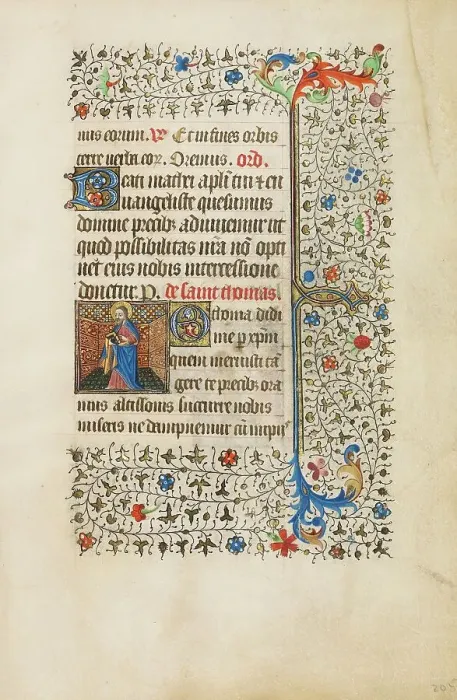 nus eorum. V Et in fines orbis
terre verba eor. Oremus. ord.
Beati mathei apli tui et eu
uangeliste quesumus
domine precibz adiuuemur ut
quod possibilitas nra nō opti
net eius nobis intercessione
donetur. P. de saint thomas.
O thoma didi
me p xpm
quem meruisti tā
gere te precibz ora
mus altissonis succurre nobis
miseris ne dampnemur cū impiis
205